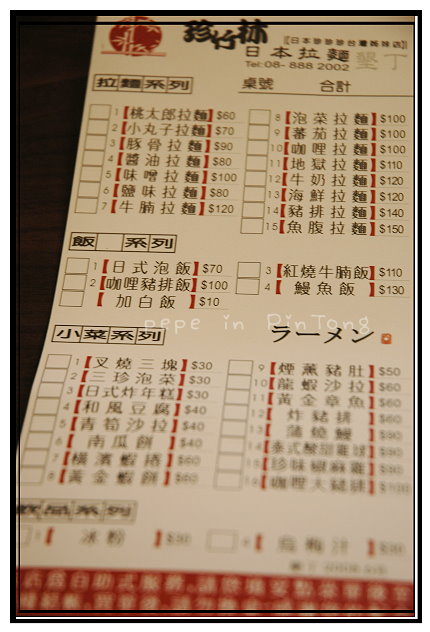 珍竹林
【日本珍珍珍台灣姊妹店】
日本拉麵 墾丁
Tel:08-888 2002
拉麵系列 桌號 合計
1【桃太郎拉麵】$60
2【小丸子拉麵】$70
3【豚骨拉麵】$90
4【醬油拉麵】$80
5【味噌拉麵】$100
6【鹽味拉麵】$80
7【牛腩拉麵】$120
8【泡菜拉麵】$100
9【蕃茄拉麵】$100
10【咖哩拉麵】$100
11【地獄拉麵】$110
12【牛奶拉麵】$120
13【海鮮拉麵】$120
14【豬排拉麵】$140
15【魚腹拉麵】$150
飯 系列
1【日式泡飯】$70
2【咖哩豬排飯】$100
【加白飯】$10
3【紅燒牛腩飯】$110
4【鰻魚飯】$130
pepe in PinTong
小菜系列 ラーメン
1【叉燒三塊】$30
2【三珍泡菜】$30
3【日式炸年糕】$30
4【和風豆腐】$40
5【青筍沙拉】$40
6【南瓜餅】$40
7【橫濱蝦捲】$60
8【黃金蝦餅】$60
9【煙薰豬肚】$50
10【龍蝦沙拉】$60
11【黃金章魚】$60
12【炸豬排】$60
13【蒲燒鰻】$90
14【泰式酸甜雞球】$90
15【珍味椒麻雞】$90
16【咖哩大豬排】$100
飲品系列
1【冰粉】$30
【烏梅汁】$30